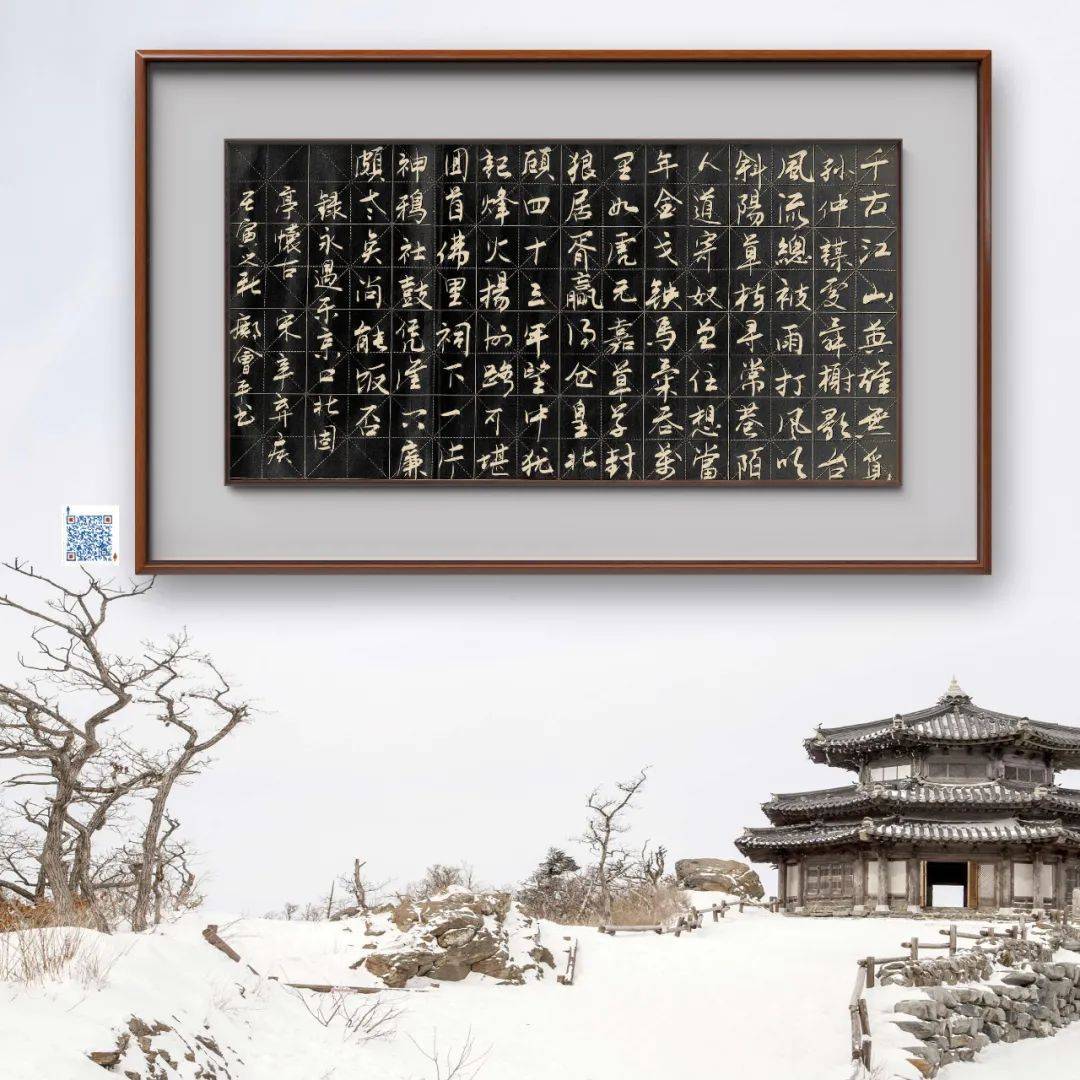 千古江山英雄無覓
孫仲謀處舞榭歌台
風流總被雨打風吹
斜陽草樹尋常巷陌
人道寄奴曾住想當
年金戈鐵馬氣吞萬
里如虎元嘉草草封
狼居胥贏得倉皇北
顧四十三年望中猶
記烽火揚州路可堪
回首佛里祠下一片
神鴉社鼓凭誰問廉
頗老矣尚能飯否
錄永遇樂京口北固
亭懷古 宋 辛弃疾
壬寅之秋 會平書